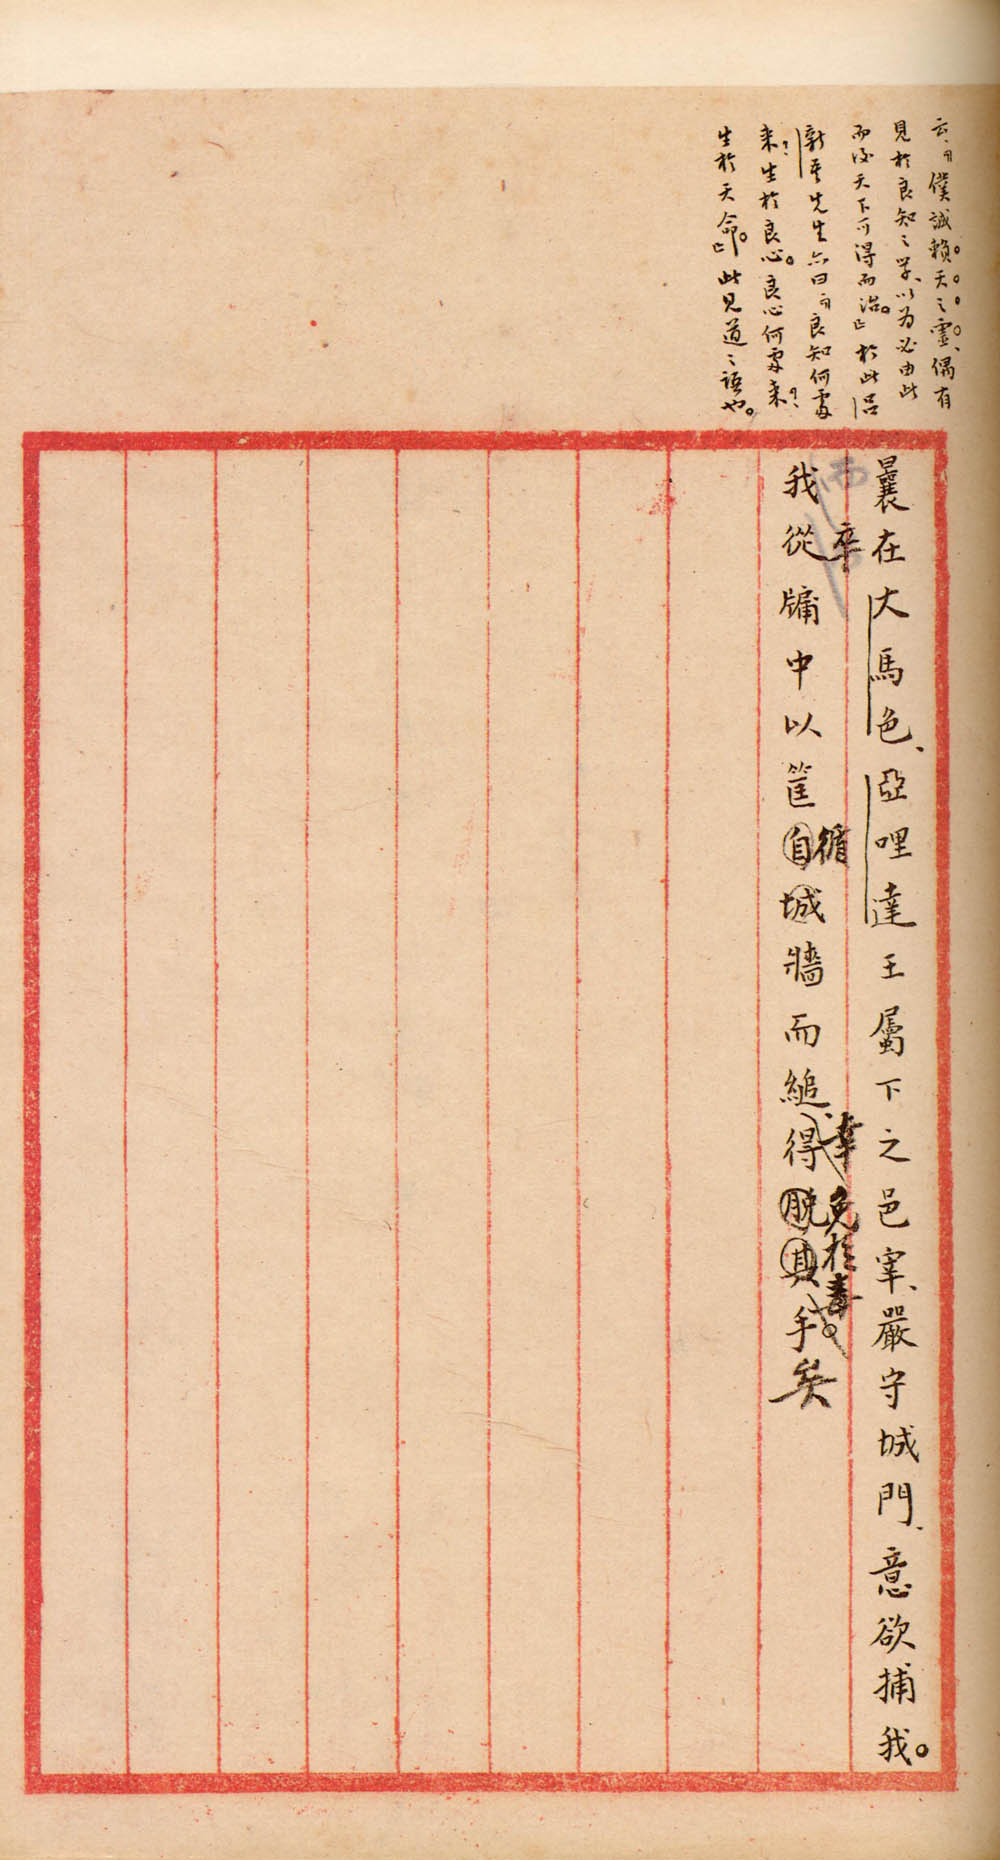 云、「僕誠賴天之靈、偶有
見於良知之學、以為必由此
而後天下可得而治。」於此呂
新吾先生亦曰「良知何處
來？生於良心。良心何處來？
生於天命。」此見道之語也。
曩在大馬色、亞哩達王屬下之邑宰、嚴守城門、意欲捕我。
卒
我從牖中以筐自城牆而縋得脫其手。矣
循
幸免於毒